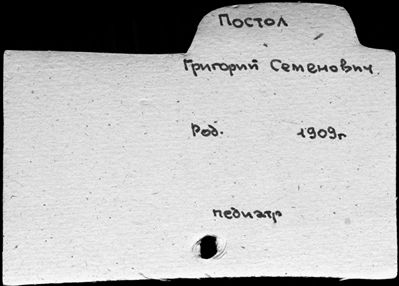 Постол
Григорий Семенович
Род. 1909г
педиатр